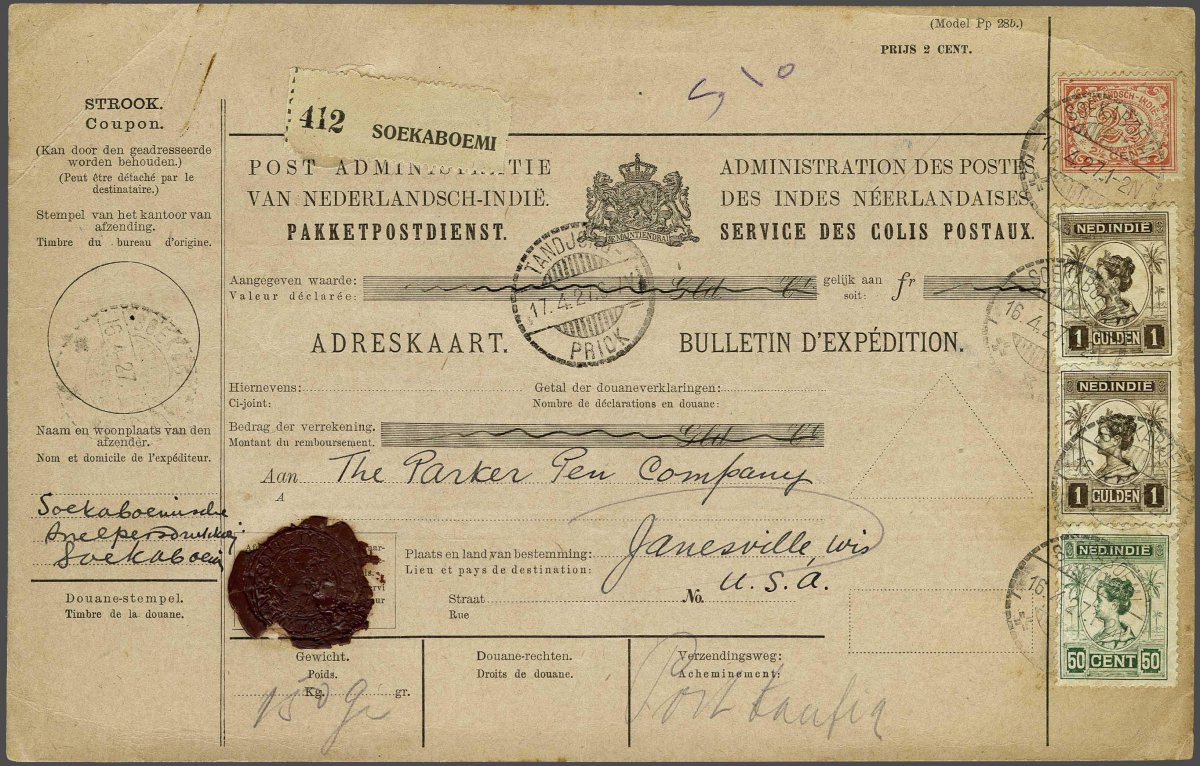 (Model Pp 28b.)
PRIJS 2 CENT.
STROOK.
Coupon.
(Kan door den geadresseerde
worden behouden.)
(Peut être détaché par le
destinataire.)
Stempel van het kantoor van
afzending.
Timbre du bureau d'origine.
Naam en woonplaats van den
afzender.
Nom et domicile de l'expéditeur.
Soekaboemische
Snelpersdrukkerij
Soekaboemi
Douane-stempel.
Timbre de la douane.
412 SOEKABOEMI
POST ADMINISTRATIE
VAN NEDERLANDSCH-INDIË.
PAKKETPOSTDIENST.
ADMINISTRATION DES POSTES
DES INDES NÉERLANDAISES
SERVICE DES COLIS POSTAUX.
TANDJONG
17.4.27
PRIOK
Aangegeven waarde:
Valeur déclarée:
gelijk aan
soit:
fr
ADRESKAART.
BULLETIN D'EXPÉDITION.
Hiernevens:
Ci-joint:
Getal der douaneverklaringen:
Nombre de déclarations en douane:
Bedrag der verrekening.
Montant du remboursement.
Aan The Parker Pen Company
A
Plaats en land van bestemming: Janesville, Wis
Lieu et pays de destination:
U.S.A.
Straat
Rue
No.
Gewicht.
Poids.
Kg. gr.
150 gr
Douane-rechten.
Droits de douane.
Verzendingsweg:
Acheminement:
NEDERLANDSCH-INDIË
2½
CENT
16.4.27.1-2N
NED. INDIË
1 GULDEN 1
16.4.27
NED. INDIË
1 GULDEN 1
NED. INDIË
50 CENT 50